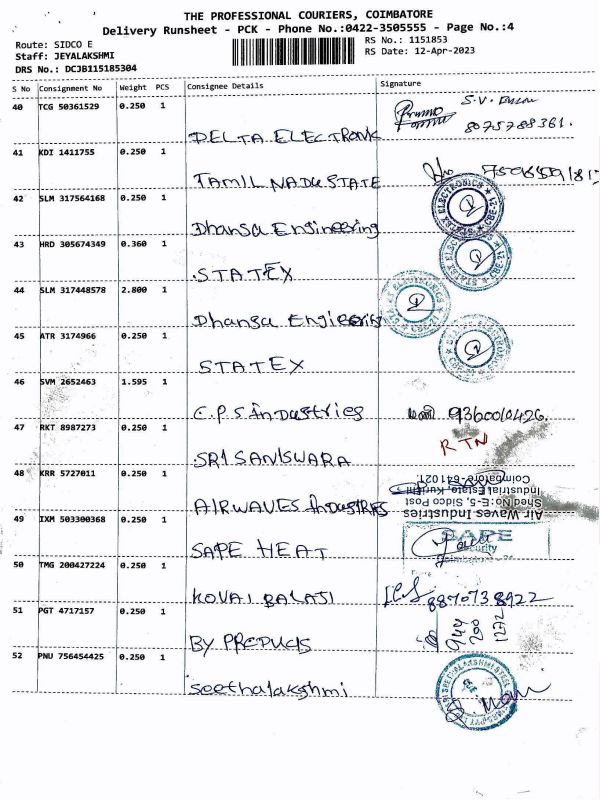 THE PROFESSIONAL COURIERS, COIMBATORE
Delivery Runsheet - PCK - Phone No.:0422-3505555 - Page No.:4
Route: SIDCO E RS No.: 1151853
Staff: JEYALAKSHMI RS Date: 12-Apr-2023
DRS No.: DCJB115185304
S No Consignment No Weight PCS Consignee Details Signature
40 TCG 50361529 0.250 1
DELTA ELECTRONIC 8075788361.
41 KDI 1411755 0.250 1
TAMIL NADU STATE
42 SLM 317564168 0.250 1
Dhansa Engineering
43 HRD 305674349 0.360 1
STATEX
44 SLM 317448578 2.800 1
Dhansa Engineering
45 ATR 3174966 0.250 1
STATEX
46 SVM 2652463 1.595 1
C.P.S industries 9360010426.
47 RKT 8987273 0.250 1
RTN
SRI SANISWARA
48 KRR 5727011 0.250 1
AIRWAVES industries
Air Waves Industries
Shed No: E-5, Sidco Post
Industrial Estate, Kurichi
Coimbatore-641021.
49 IXM 503300368 0.250 1
SAPE HEAT
SAPE
Security
50 TMG 200427224 0.250 1
KOVAI BALAJI 8870738922
51 PGT 4717157 0.250 1
BY PRODUCTS 944 200 1272
52 PNU 756454425 0.250 1
Seethalakshmi